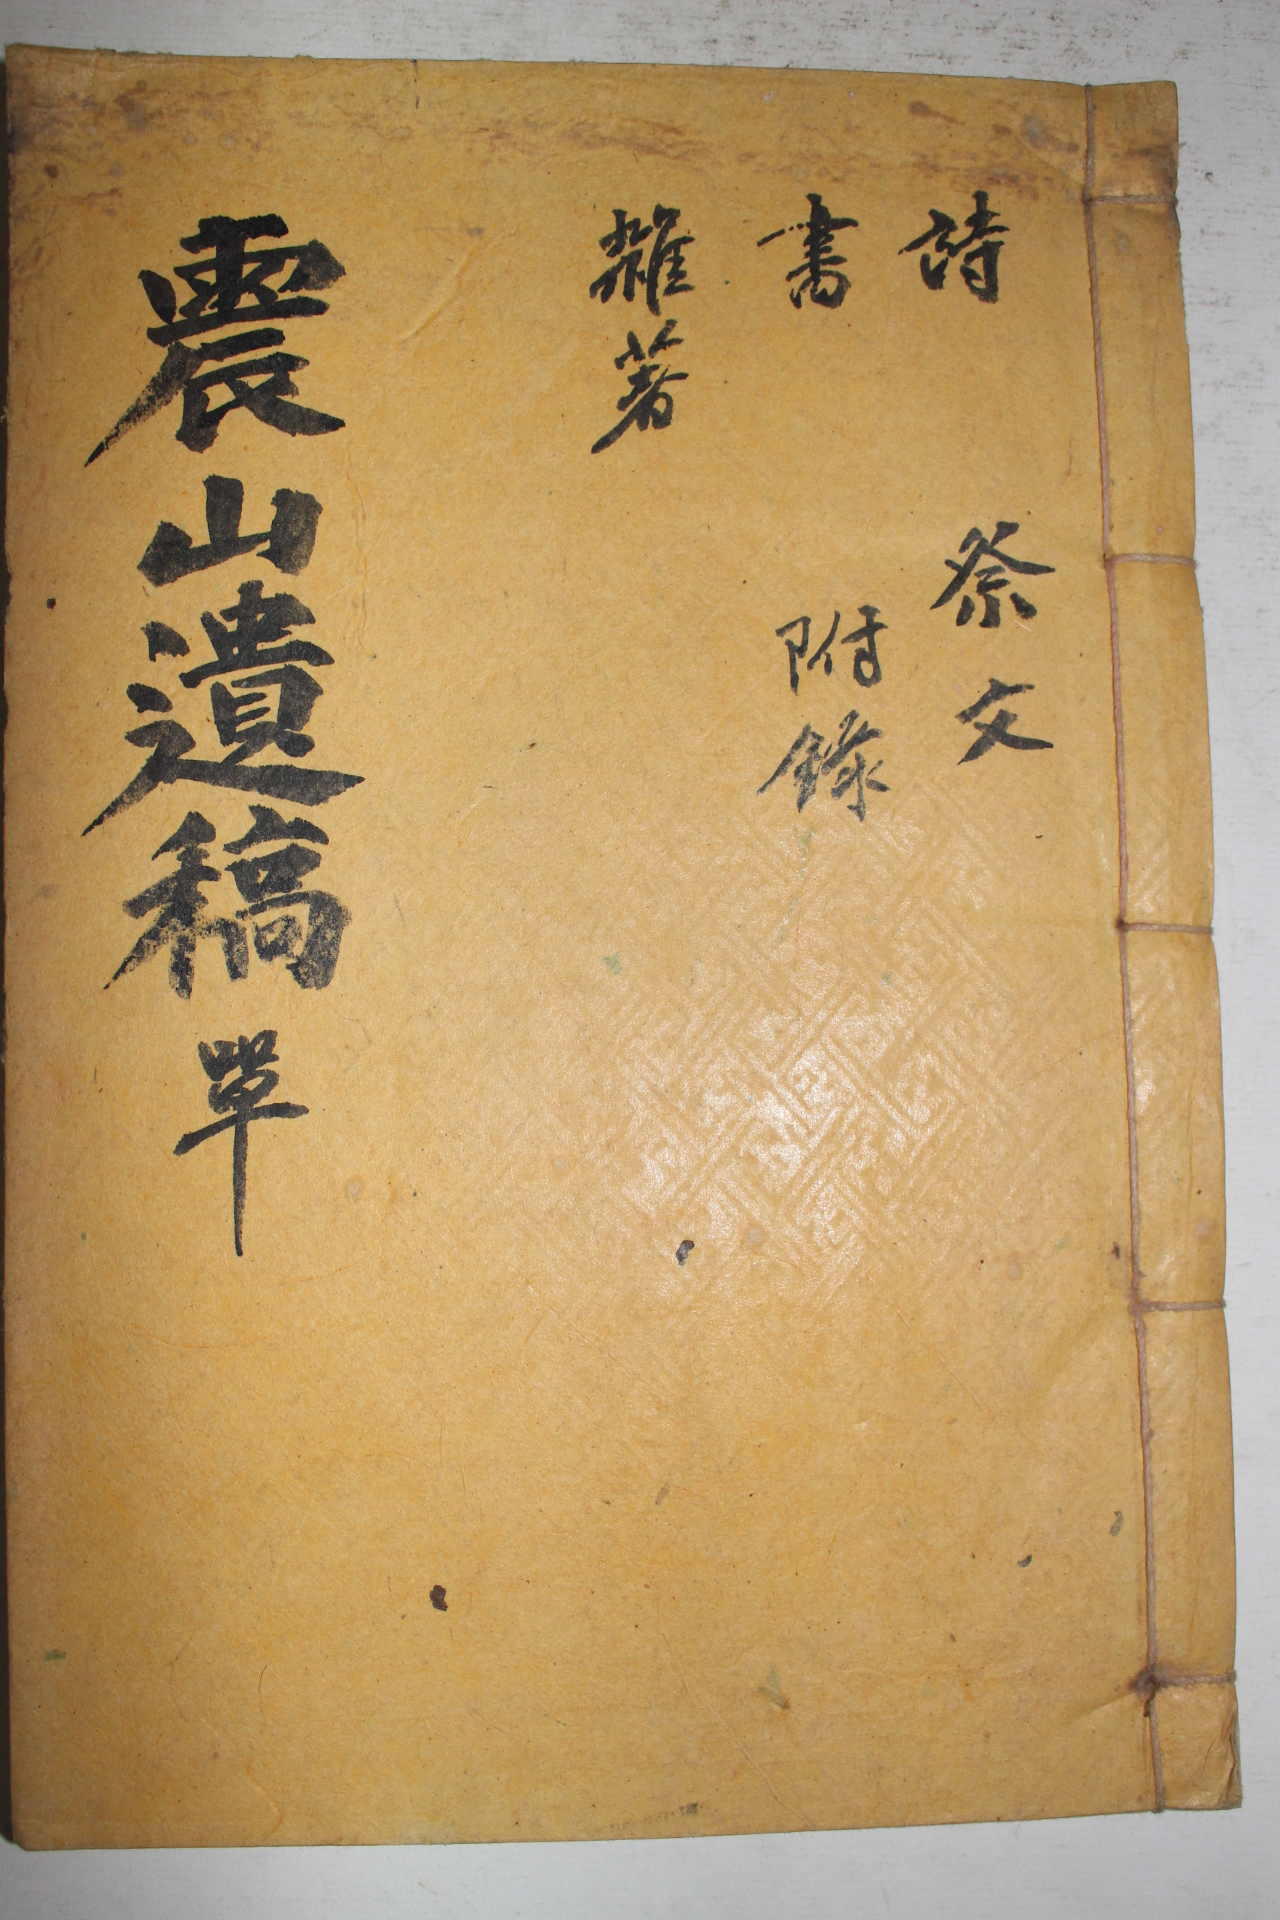 詩
書
雜著
祭文
附錄
震山遺稿 單